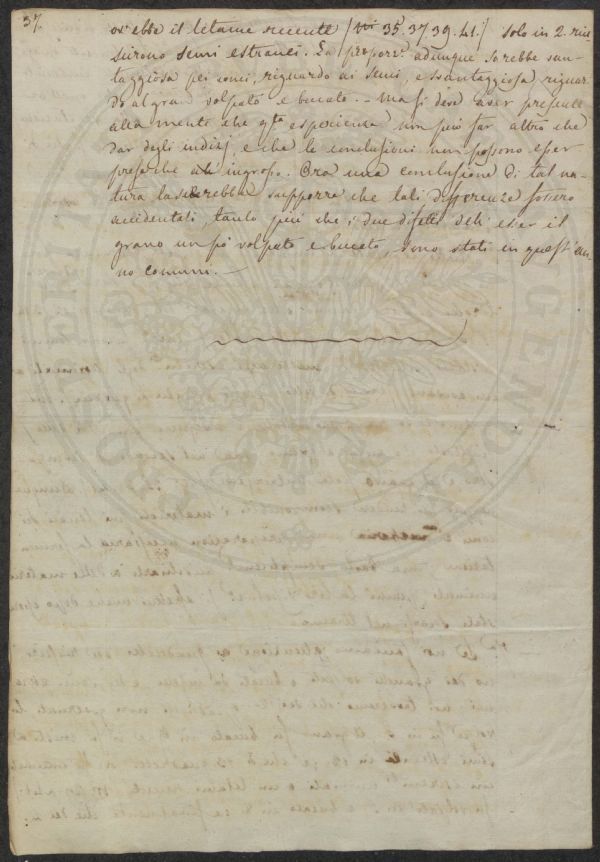 37.
ov' ebbe il letame recente (Ni 35. 37 39. 41.) solo in 2. riu-
scirono semi estranei. La proporz.e adunque sarebbe van-
taggiosa pei conci, riguardo ai semi, e svantaggiosa riguar-
do al gran volpato e bucato. - Ma si deve aver presente
alla mente che q.ta esperienza non può far altro che
dar degli indizj e che le conclusioni non possono esser
prese che all' ingrosso. Ora una conclusione di tal na-
tura lascerebbe supporre che tali differenze fossero
accidentali, tanto più che i due difetti dell' esser il
grano un po' volpato e bucato, sono stati in quest' an-
no comuni. -